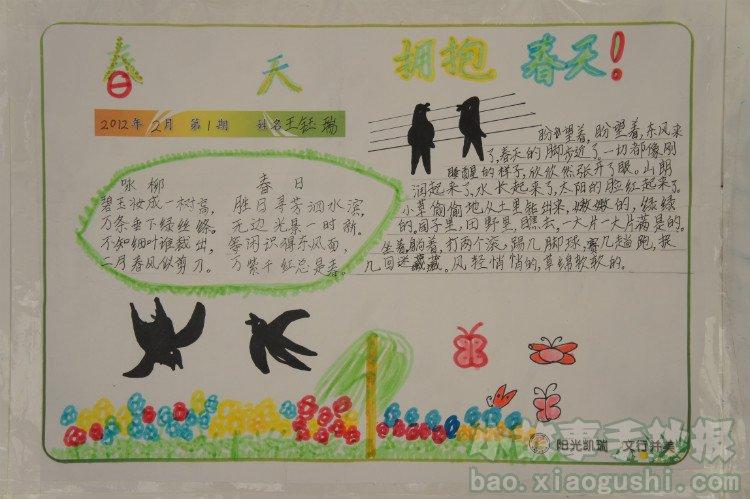 春 天
拥抱 春天！
2012年 2月 第1期 姓名王钰瑞
咏柳
碧玉妆成一树高，
万条垂下绿丝绦。
不知细叶谁裁出，
二月春风似剪刀。
春日
胜日寻芳泗水滨，
无边光景一时新。
等闲识得东风面，
万紫千红总是春。
盼望着，盼望着，东风来
了，春天的脚步近了。一切都像刚
睡醒的样子，欣欣然张开了眼。山朗
润起来了，水长起来了，太阳的脸红起来了。
小草偷偷地从土里钻出来，嫩嫩的，绿绿
的。园子里，田野里，瞧去，一大片一大片满是的。
坐着，躺着，打两个滚，踢几脚球，赛几趟跑，捉
几回迷藏。风轻悄悄的，草绵软软的。
阳光凯瑞 文行并美
小故事手抄报
bao.xiaogushi.com